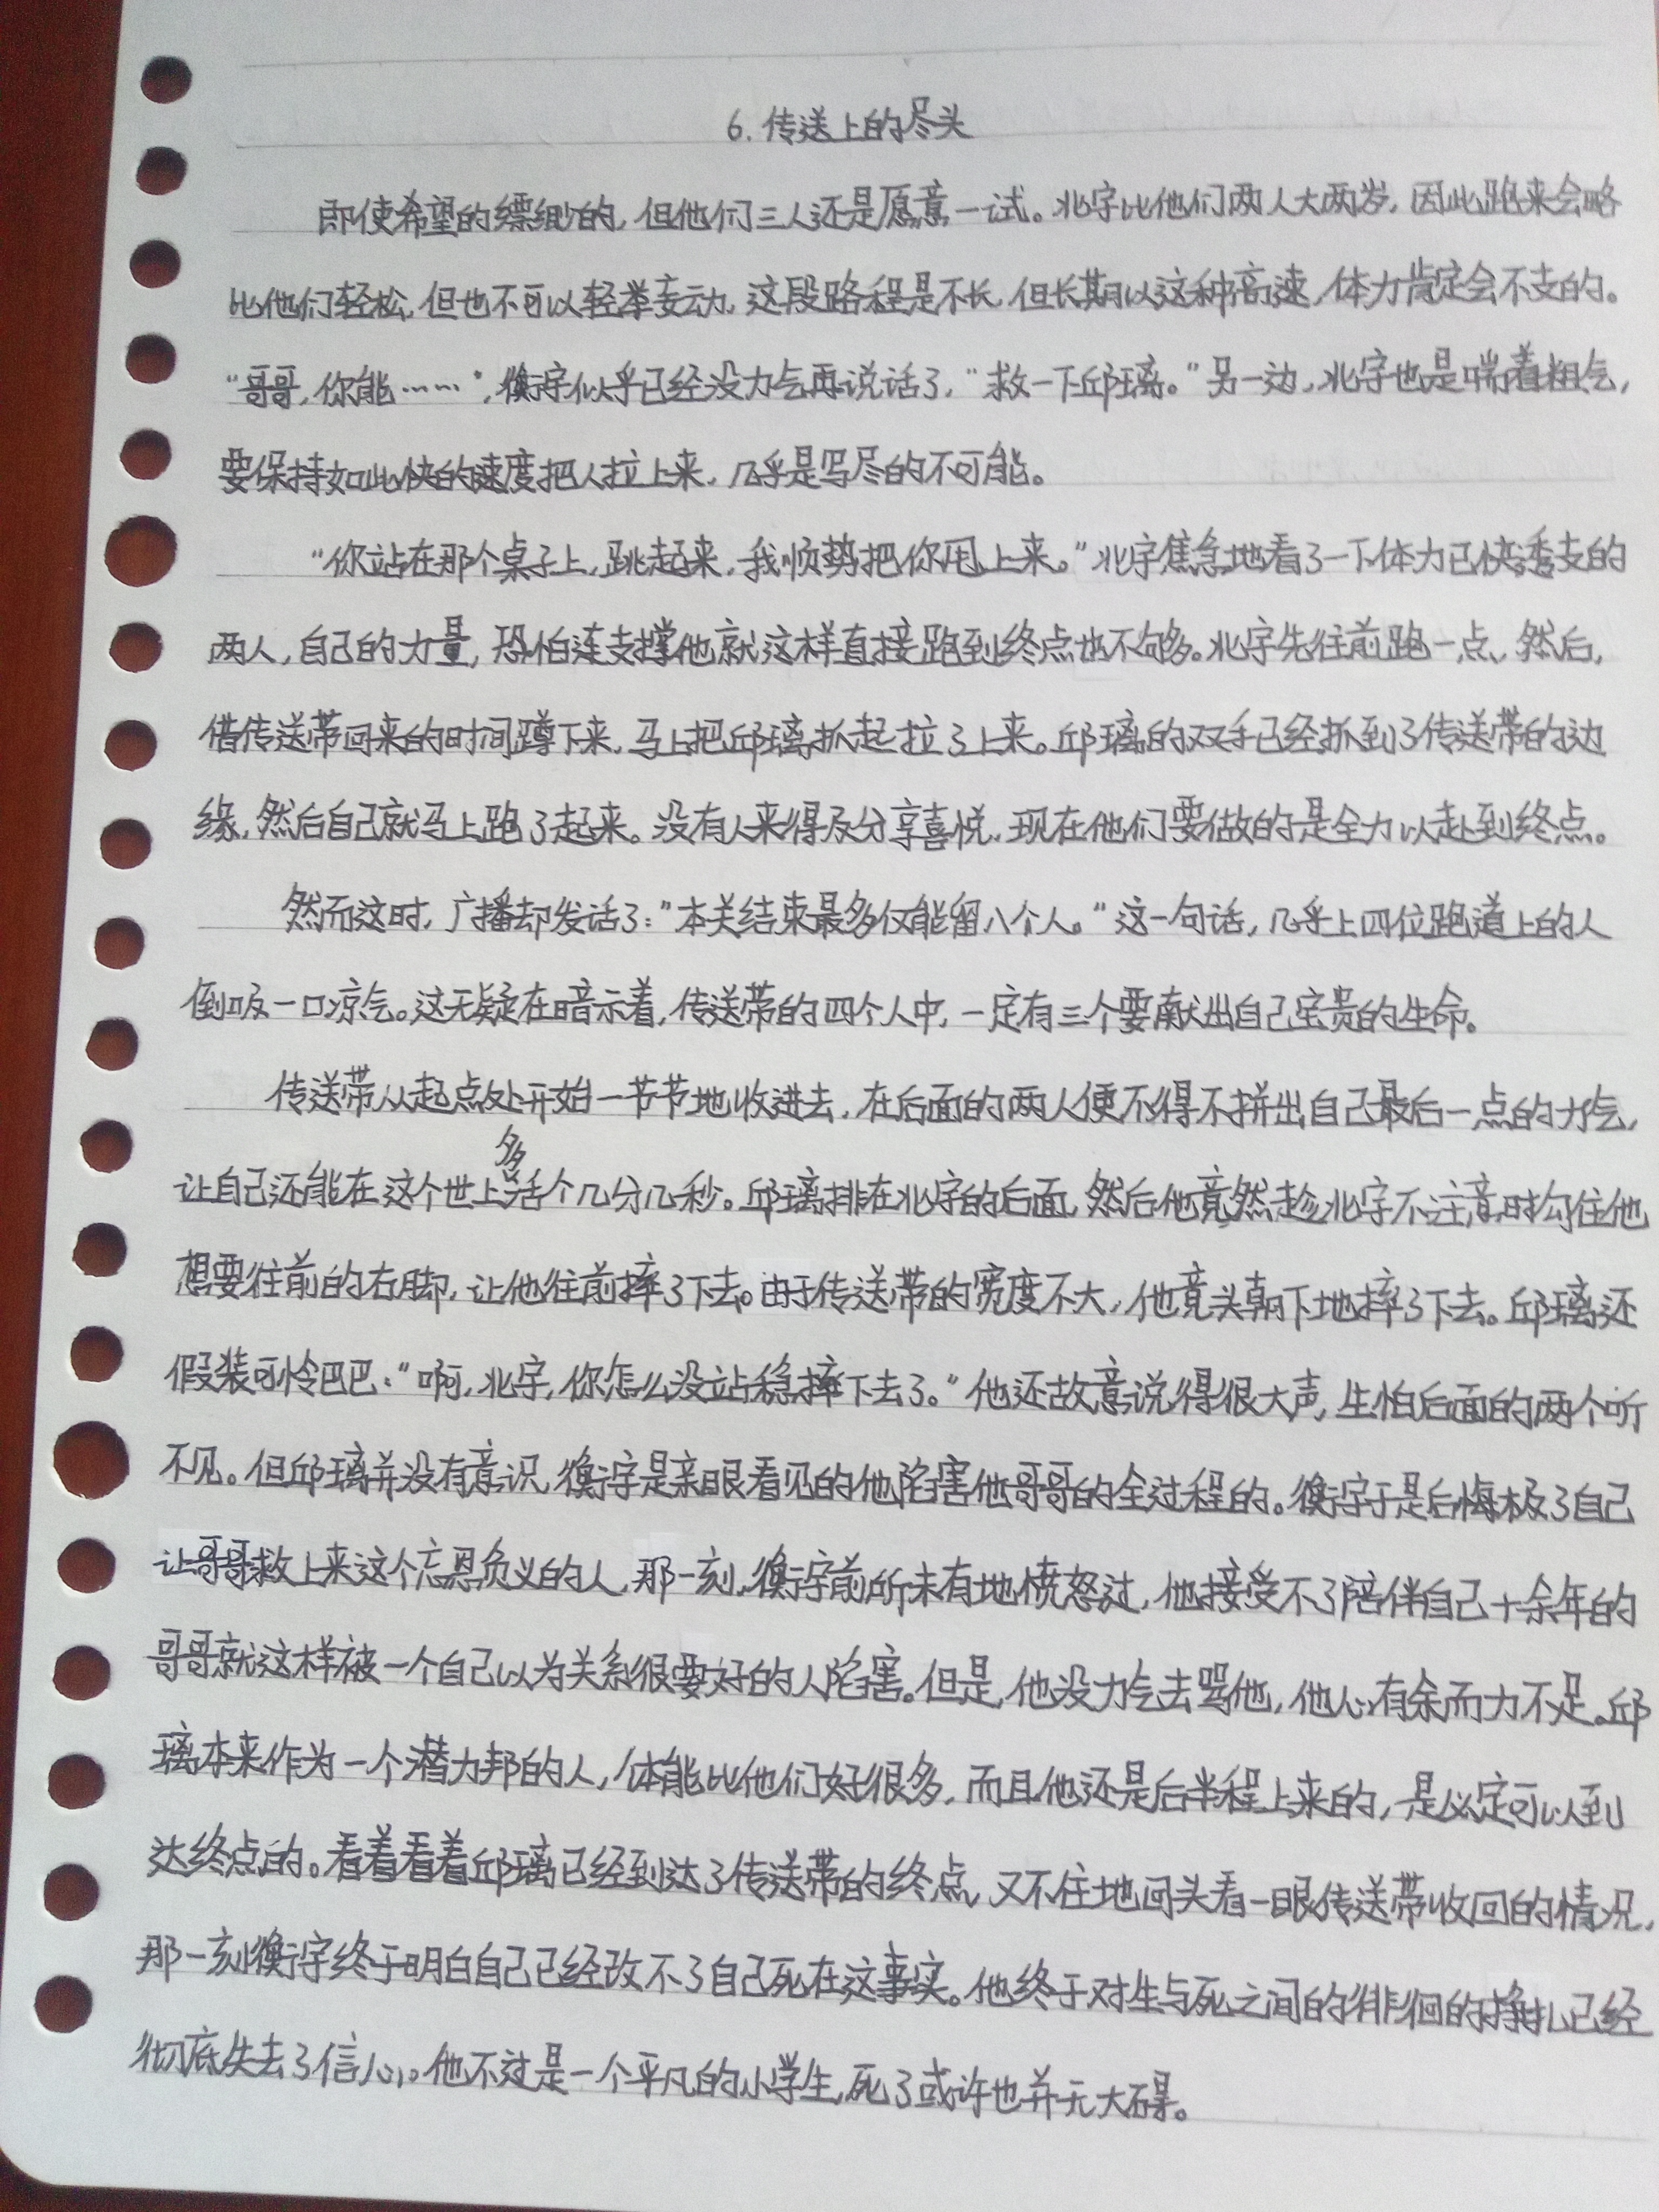 6.传送上的尽头
即使希望的缥缈的，但他们三人还是愿意一试。北字比他们两人大两岁，因此跑来会略
比他们轻松，但也不可以轻举妄动，这段路程是不长，但长期以这种高速，体力肯定会不支的。
“哥哥，你能……”，衡字似乎已经没力气再说话了，“救一下邱璃。”另一边，北字也是喘着粗气，
要保持如此快的速度把人拉上来，几乎是写尽的不可能。
“你站在那个桌子上，跳起来，我顺势把你甩上来。”北字焦急地看了一下体力已快透支的
两人，自己的力量，恐怕连支撑他就这样直接跑到终点也不够多。北字先往前跑一点，然后，
借传送带回来的时间蹲下来，马上把邱璃抓起拉了上来。邱璃的双手已经抓到了传送带的边
缘，然后自己就马上跑了起来。没有人来得及分享喜悦，现在他们要做的是全力以赴到终点。
然而这时，广播却发话了：“本关结束最多仅能留八个人。”这一句话，几乎上四位跑道上的人
倒吸一口凉气。这无疑在暗示着，传送带的四个人中，一定有三个要献出自己宝贵的生命。
传送带从起点处开始一节节地收进去，在后面的两人便不得不拼出自己最后一点的力气，
让自己还能在这个世上多活个几分几秒。邱璃排在北字的后面，然后他竟然趁北字不注意时勾住他
想要往前的右脚，让他往前摔了下去。由于传送带的宽度不大，他竟头朝下地摔了下去。邱璃还
假装可怜巴巴：“啊，北字，你怎么没站稳摔下去了。”他还故意说得很大声，生怕后面的两个听
不见。但邱璃并没有意识，衡字是亲眼看见的他陷害他哥哥的全过程的。衡字于是后悔极了自己
让哥哥救上来这个忘恩负义的人，那一刻，衡字前所未有地愤怒过，他接受不了陪伴自己十余年的
哥哥就这样被一个自己以为关系很要好的人陷害。但是，他没力气去骂他，他心有余而力不足。邱
璃本来作为一个潜力邦的人，体能比他们好很多，而且他还是后半程上来的，是必定可以到
达终点的。看着看着邱璃已经到达了传送带的终点，又不住地回头看一眼传送带收回的情况，
那一刻衡字终于明白自己已经改不了自己死在这事实。他终于对生与死之间的徘徊的挣扎已经
彻底失去了信心。他不过是一个平凡的小学生，死了或许也并无大碍。